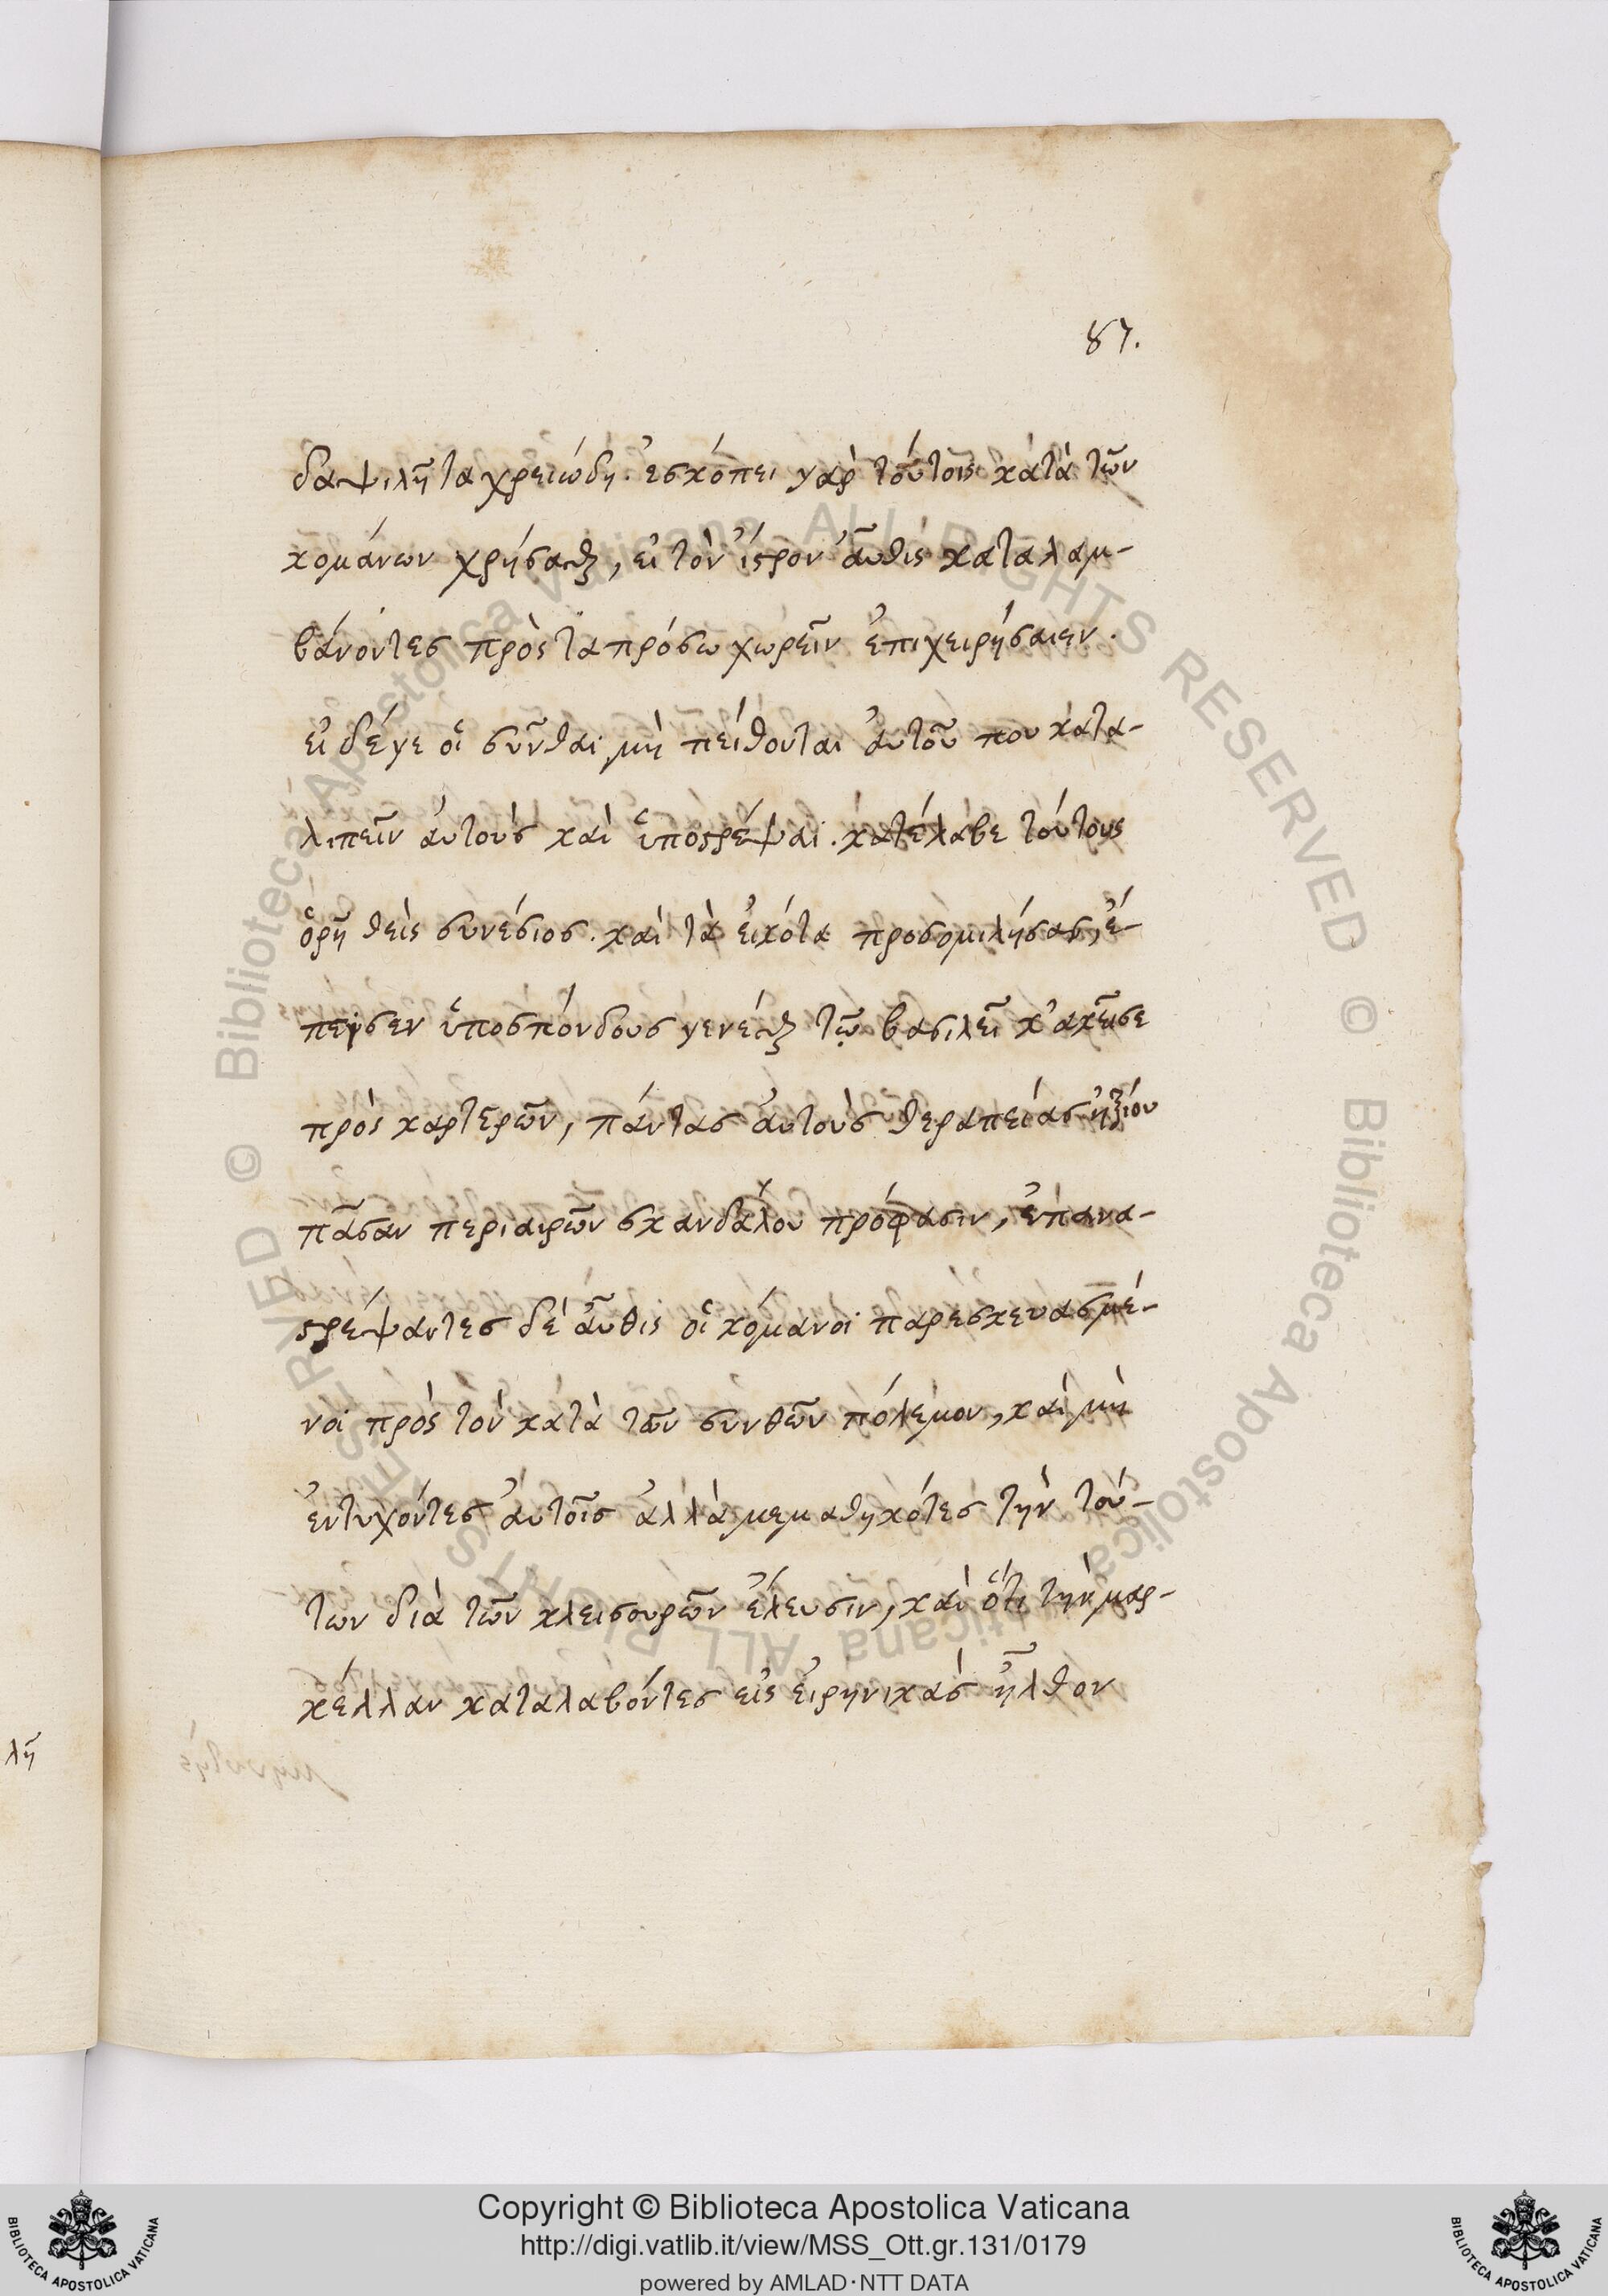 87.
δαψιλῆ τα χρειώδη. ἐσκόπει γὰρ τούτοις κατὰ τῶν
κομάνων χρήσασθαι, εἰ τὸν ἴστρον αὖθις καταλαμ-
βάνοντες πρὸς τὰ πρόσω χωρεῖν ἐπιχειρήσαιεν.
εἰ δέγε οἱ σύνθαι μὴ πείθονται ἀυτοῦ που κατα-
λιπεῖν ἀυτοὺς καὶ ὑποστρέψαι. κατέλαβε τούτους
ὁρηθεὶς συνέσιος. καὶ τὰ εἰκότα προσομιλήσας, ἔ-
πεισεν ὑποσπόνδους γενέσθαι τῷ βασιλεῖ κ᾽ακεῖσε
πρὸς καρτερῶν, πάντας ἀυτοὺς θεραπείας ἠξίου
πᾶσαν περιαιρῶν σκανδάλου πρόφασιν, ἐπανα-
στρέψαντες δὲ αὖθις οἱ κόμανοι παρεσκευασμέ-
νοι πρὸς τὸν κατὰ τῶν συνθῶν πόλεμον, καὶ μὴ
ἐντυχόντες ἀυτοῖς ἀλλὰ μεμαθηκότες τὴν τού-
των διὰ τῶν κλεισουρῶν ἔλευσιν, καὶ ὅτι τὴν μαρ-
κέλλαν καταλαβόντες εἰς εἰρηνικὰς ἦλθον
λῆ
Copyright © Biblioteca Apostolica Vaticana
http://digi.vatlib.it/view/MSS_Ott.gr.131/0179
powered by AMLAD·NTT DATA
BIBLIOTECA APOSTOLICA VATICANA
BIBLIOTECA APOSTOLICA VATICANA
© Biblioteca Apostolica Vaticana ALL RIGHTS RESERVED
© Biblioteca Apostolica Vaticana ALL RIGHTS RESERVED